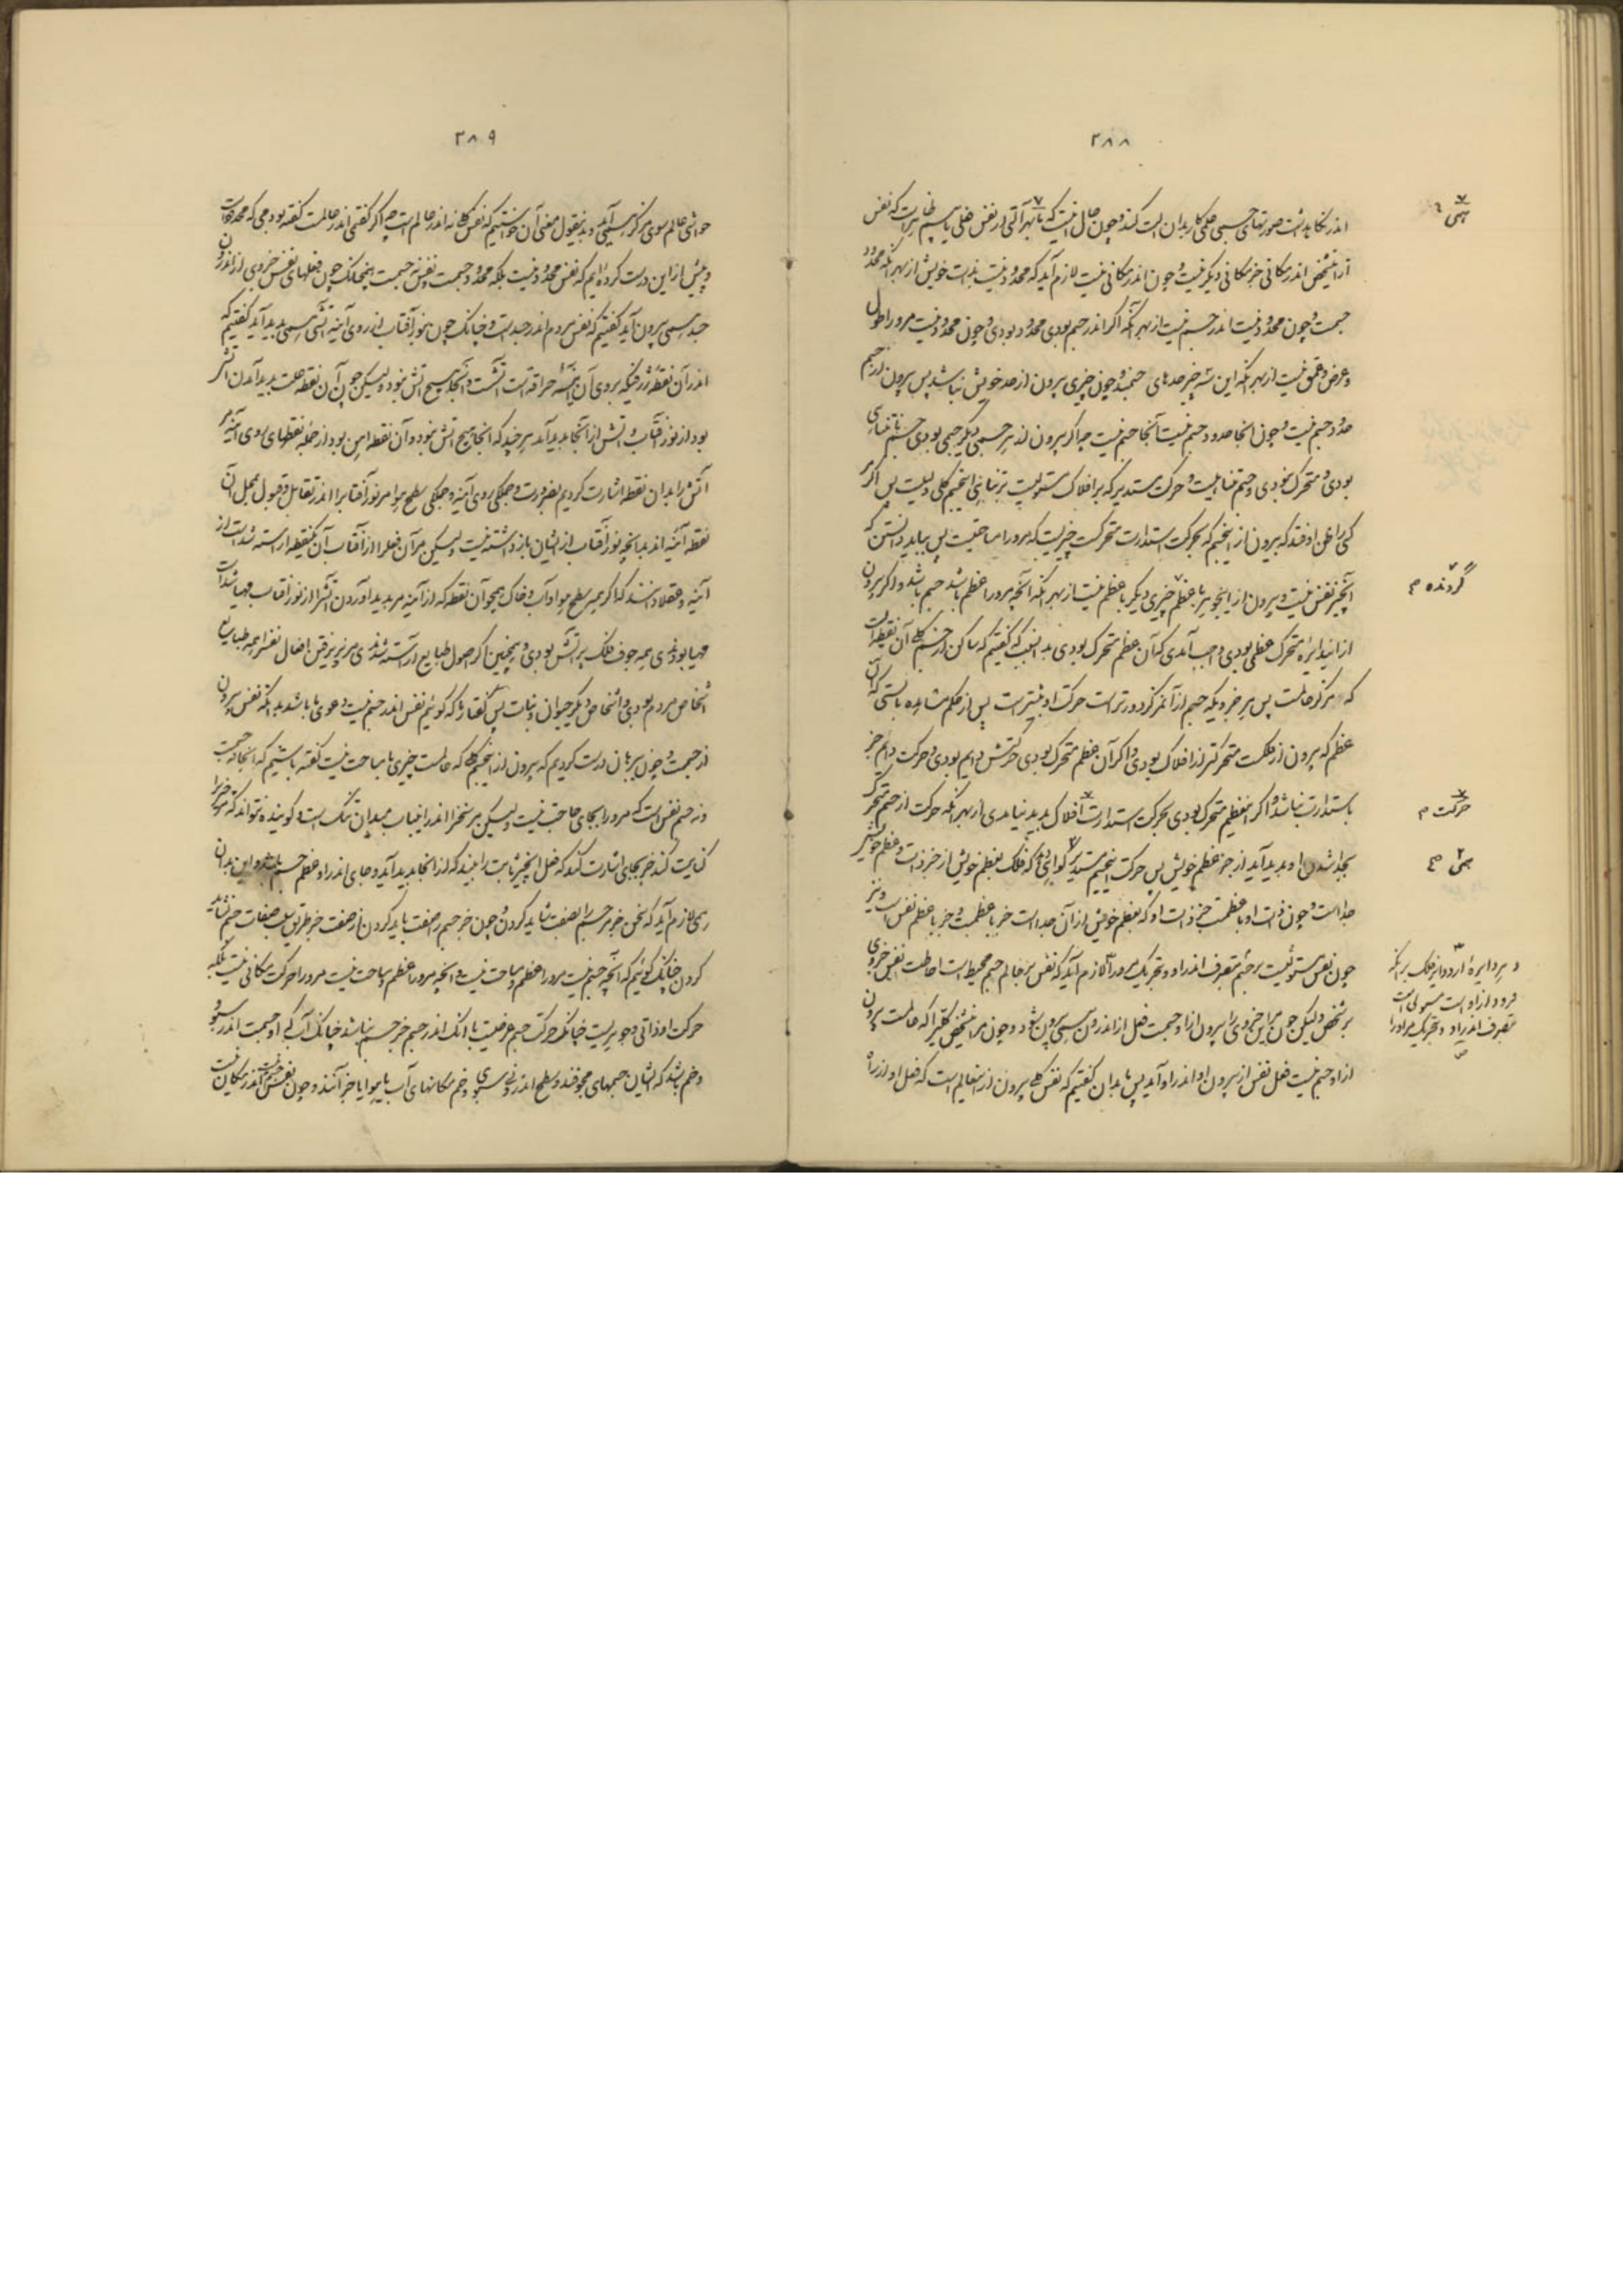 ۲۸۸
اندر نگاهداشت صورتهای جسمی همی کار بدان الت کند و چون حال اینست که نفس
اندر مکانی جز مکانی دیگر نیست و چون اندر مکانی نیست لازم آید که محدود نیست بذات خویش از بهر آنکه محدود
جسمست و چون محدود نیست اندر جسم نیست از بهر آنکه اگر اندر جسم بودی محدود بودی و چون محدود نیست مرو را طول
و عرض و عمق نیست از بهر آنکه این سه چیز حدهای جسمند و چون چیزی بیرون از حد خویش نباشد پس بیرون از جسم
حدود جسم نیست و چون آنجا حدود جسم نیست آنجا جسم نیست چه اگر بیرون از هر جسمی دیگر جسمی بودی جسم نامتناهی
بودی و متحرک نبودی و جسم متناهیست و حرکت مستدیر که بر افلاک مستولیست بر تناهی این جسم کلی دلیلست پس اگر
کسی را ظن اوفتد که بیرون از این جسم که بحرکت استدارت متحرکست چیزیست که مرو را مساحتیست پس بباید دانستن که
آنچیز نفس نیست و بیرون از این جوهر با عظم چیزی دیگر با عظم نیست از بهر آنکه آنچه مرو را عظم باشد جسم باشد و اگر بیرون
از این دایره متحرک عظمی بودی واجب آمدی که آن عظم متحرک بودی بدانسبب که گفتیم که ساکن از جسم کلی آن نقطه است
که مرکز عالمست پس هر جزویکه جسم از آن مرکز دورتر است حرکت او بیشتر است پس از حکم مشاهده بایستی که آن
عظم که بیرون از فلکست متحرکتر از افلاک بودی و اگر آن عظم متحرک بودی حرکتش دایم بودی و حرکت دایم جز
باستدارت نباشد و اگر آن عظیم متحرک بودی بحرکت استدارت افلاک پدید نیامدی از بهر آنکه حرکت از جسم متحرک
بجدا شدن او پدید آید از جز عظم خویش پس حرکت این جسم مستدیر گواهی که فلک بعظم خویش از جز ذات و عظم خویش
جداست و چون ذات او با عظمست جز ذات او که بعظم خویش از آن جداست جز با عظمست و جز با عظم نفس است و نیز
چون نفس مستولیست بر جسم بتصرف اندر او و تحریک مرو را لازم آید که نفس بر عالم جسم محیط است احاطت نفس جزوی
بر شخص ولیکن چون مر این جزوی را بیرون از او جسمست فعل از اندرون سوی بیرون شود و چون مر این شخص کلی را که عالمست بیرون
از او جسم نیست فعل نفس از بیرون او اندر او آید پس بدان گفتیم که نفس کلی بیرون از این عالم است که فعل او از
همی
گردنده م
حرکت م
همی
و هر دایره از دوایر فلک بر آنکه
فرود از اوست مستولی است
بتصرف اندر او و تحریک مر او را
۲۸۹
حواشی عالم سوی مرکز همی آید و بدین قول معنی آن خواستیم که نفس کلی نه اندر عالم است چه اگر گفتمی اندر عالمست گفته بودمی که محدود است
و پیش از این درست کرده‌ایم که نفس محدود نیست بلکه محدود جسمست و نفس نه جسمست همچنانکه چون فعلهای نفس جزوی از اندرون
جسد همی بیرون آید گفتیم که نفس مردم اندر جسد است و چنانک چون نور آفتاب از روی آینه آتشی همی پدید آید گفتیم که
اندر آن نقطه
بود از نور آفتاب و آتش از آنجا پدید آمد هرچند که آنجا هیچ آتش نبود و آن نقطه این بود از جمله نقطهای روی آینه
آتش را بدان نقطه اشارت کردیم بضرورت و جملگی روی آینه و جملگی سطح هوا مر نور آفتاب را اندر تقابل و قبول
نقطه آینه اند بدانچه نور آفتاب از ایشان بازداشته نیست ولیکن مر آن فعل را از آفتاب آن یکنقطه آراسته شده است از
آینه و عقلا دانند که اگر همه سطح هوا و آب و خاک همچو آن نقطه که از آینه مر پدید آوردن آتش را از نور آفتاب مهیا شده است
مهیا بودندی همه جوف فلک پر آتش بودی و همچنین اگر اصول طبایع آراسته شدندی مر پذیرفتن افعال نفس را همه طبایع
اشخاص مردم بودی و اشخاص دیگر حیوان و نبات پس گفتار که گوئیم نفس اندر جسم نیست دعوی ما باشد بدانکه نفس بیرون
از جسمست و چون ببرهان درست کردیم که بیرون از این جسم کلی که عالمست چیزی با مساحت نیست گفته باشیم که آنجا نه جسمست
و نه جسم نفس است که مرو را بجای حاجت نیست ولیکن مر سخن را اندر این باب میدان تنگ است و گوینده نتواند که
کنایت کند جز بجای اشارت کند که فعل آنچیز ثابت را بیند که از آنجا پدید آید و جای اندر او عظم جسم باشد و این بدان
همی لازم آید که سخن جز مر جسم را بصفت نشاید کردن و چون جز جسم را صفت باید کردن از صفت جز بطریق سلب صفات جسم نشاید
کردن چنانک گوئیم که آنچه جسم نیست مرو را عظم و مساحت نیست و آنچه مرو را عظم و مساحت نیست مرو را حرکت مکانی نیست بلکه
حرکت او ذاتی و جوهریست چنانک حرکت جسم عرضیست یا آنک اندر جسم جز جسم نباشد چنانک آب که او جسمست اندر سبو
و خم باشد که ایشان جسمهای مجوفند و سطح اندرونی سبوی و خم مکانهای آب یا هوا یا جز آنند و چون نفس جسم نیست اندر مکان نیست